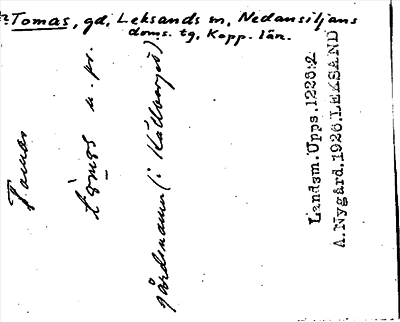 Tomas, gd, Leksands sn, Nedansiljans
doms. tg, Kopp. län.
Tomas
tòmas u. pr.
gårdsnamn (i Källberget)
Landsm. Upps. 1226:2
A. Nygård. 1926. LEKSAND